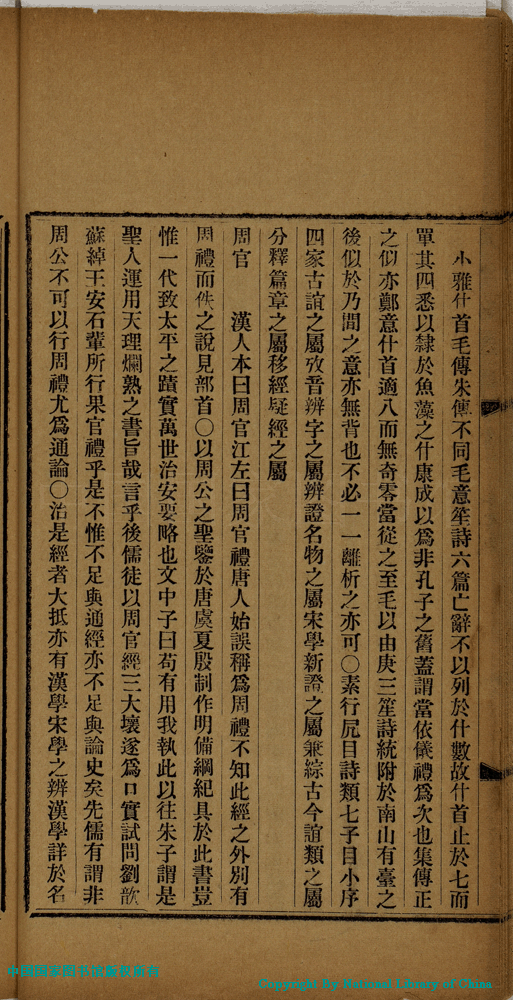 小雅什首毛傳朱傳不同毛意笙詩六篇亡辭不以列於什數故什首止於七而
單其四悉以隸於魚藻之什康成以爲非孔子之舊蓋謂當依儀禮爲次也集傳正
之似亦鄭意什首適八而無奇零當從之至毛以由庚三笙詩統附於南山有臺之
後似於乃閒之意亦無背也不必一一離析之亦可○素行凥目詩類七子目小序
四家古誼之屬攷音辨字之屬辨證名物之屬宋學新證之屬兼綜古今誼類之屬
分釋篇章之屬移經疑經之屬
周官 漢人本曰周官江左曰周官禮唐人始誤稱爲周禮不知此經之外別有
周禮而佚之說見部首○以周公之聖鑒於唐虞夏殷制作明備綱紀具於此書豈
惟一代致太平之蹟實萬世治安要略也文中子曰苟有用我執此以往朱子謂是
聖人運用天理爛熟之書旨哉言乎後儒徒以周官經三大壞遂爲口實試問劉歆
蘇綽王安石輩所行果官禮乎是不惟不足與通經亦不足與論史矣先儒有謂非
周公不可以行周禮尤爲通論○治是經者大抵亦有漢學宋學之辨漢學詳於名
中国国家图书馆版权所有
Copyright By National Library of China